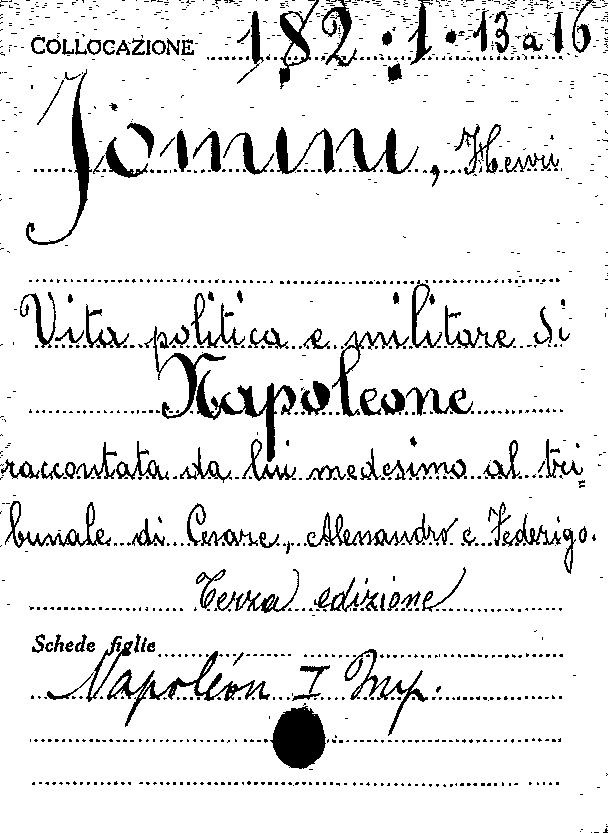 COLLOCAZIONE 182.1.13 a 16
Jomini, Henri
Vita politica e militare di
Napoleone
raccontata da lui medesimo al tri=
bunale di Cesare, Alessandro e Federigo.
Terza edizione
Schede figlie
Napoléon I Imp.